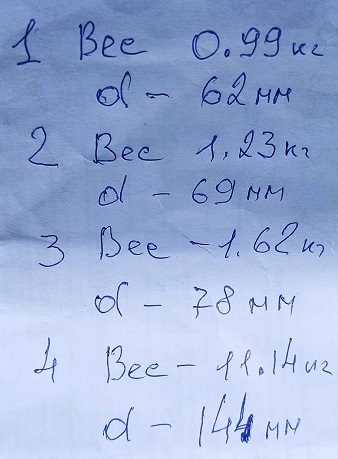 1 Вес 0.99кг
d - 62мм
2 Вес 1.23кг
d - 69мм
3 Вес - 1.62кг
d - 78мм
4 Вес - 11.14кг
d - 144мм